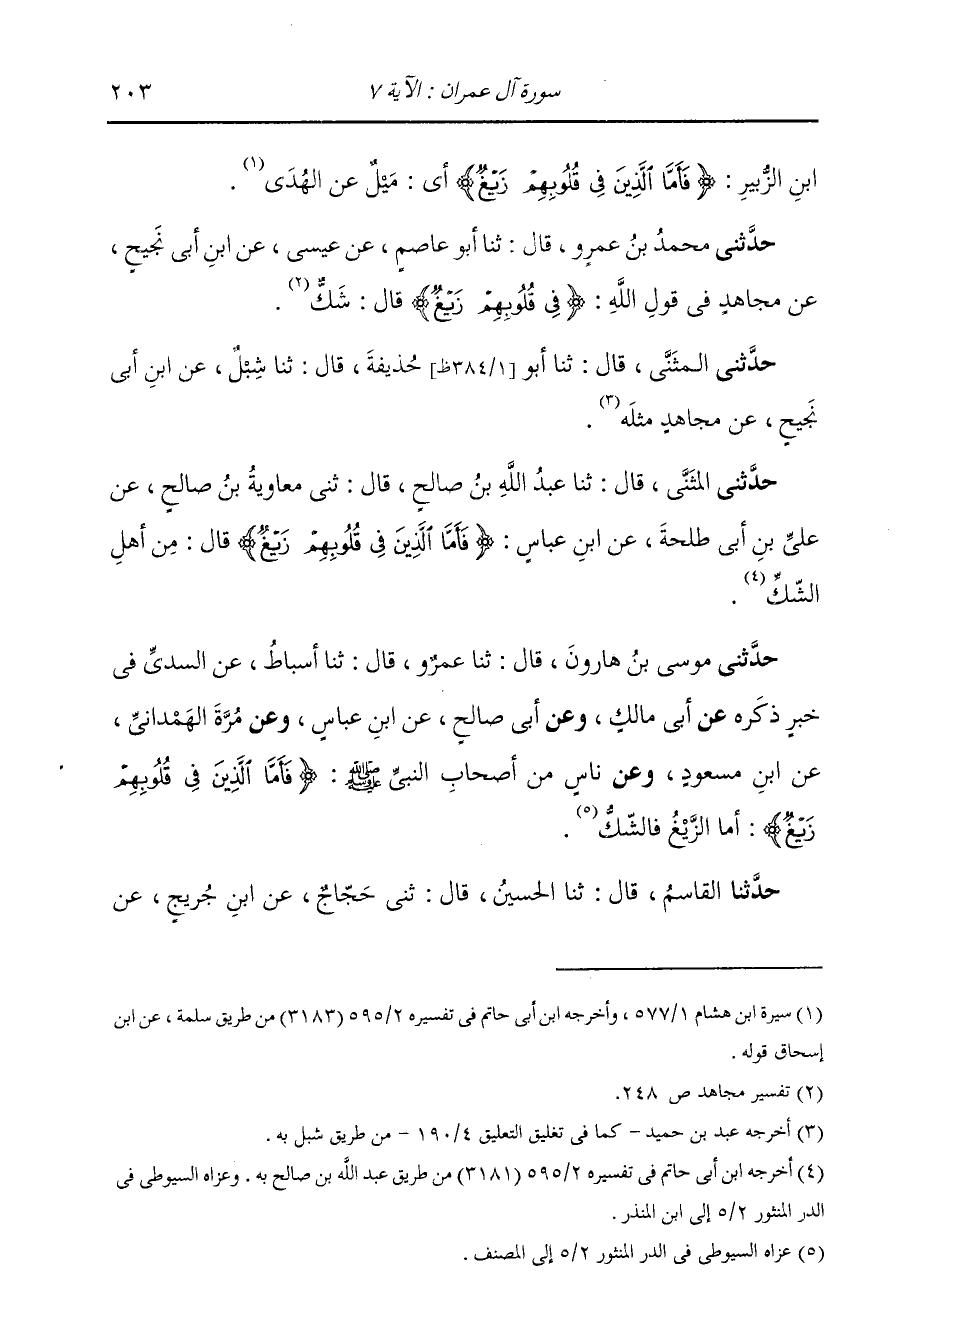 سورة آل عمران : الآية ٧ ٢٠٣
ابنِ الزُّبيرِ : ﴿ فَأَمَّا ٱلَّذِينَ فِي قُلُوبِهِمْ زَيْغٌ ﴾ أى : مَيْلٌ عن الهُدَى(١) .
حدَّثنى محمدُ بنُ عمرٍو ، قال : ثنا أبو عاصمٍ ، عن عيسى ، عن ابنِ أبى نَجيحٍ ،
عن مجاهدٍ فى قولِ اللَّهِ : ﴿ فِي قُلُوبِهِمْ زَيْغٌ ﴾ قال : شَكٌّ(٢) .
حدَّثنى المثنَّى ، قال : ثنا أبو [٣٨٤/١ظ] حُذيفةَ ، قال : ثنا شِبْلٌ ، عن ابنِ أبى
نَجيحٍ ، عن مجاهدٍ مثلَه(٣) .
حدَّثنى المثنَّى ، قال : ثنا عبدُ اللَّهِ بنُ صالحٍ ، قال : ثنى معاويةُ بنُ صالحٍ ، عن
علىِّ بنِ أبى طلحةَ ، عن ابنِ عباسٍ : ﴿ فَأَمَّا ٱلَّذِينَ فِي قُلُوبِهِمْ زَيْغٌ ﴾ قال : مِن أهلِ
الشَّكِّ(٤) .
حدَّثنى موسى بنُ هارونَ ، قال : ثنا عمرٌو ، قال : ثنا أسباطُ ، عن السدىِّ فى
خبرٍ ذكَره عن أبى مالكٍ ، وعن أبى صالحٍ ، عن ابنِ عباسٍ ، وعن مُرَّةَ الهَمْدانىِّ ،
عن ابنِ مسعودٍ ، وعن ناسٍ من أصحابِ النبىِّ ﷺ : ﴿ فَأَمَّا ٱلَّذِينَ فِي قُلُوبِهِمْ
زَيْغٌ ﴾ : أما الزَّيْغُ فالشَّكُّ(٥) .
حدَّثنا القاسمُ ، قال : ثنا الحسينُ ، قال : ثنى حَجّاجٌ ، عن ابنِ جُريجٍ ، عن
(١) سيرة ابن هشام ٥٧٧/١ ، وأخرجه ابن أبى حاتم فى تفسيره ٥٩٥/٢ (٣١٨٣) من طريق سلمة ، عن ابن
إسحاق قوله .
(٢) تفسير مجاهد ص ٢٤٨.
(٣) أخرجه عبد بن حميد - كما فى تغليق التعليق ١٩٠/٤ - من طريق شبل به .
(٤) أخرجه ابن أبى حاتم فى تفسيره ٥٩٥/٢ (٣١٨١) من طريق عبد اللَّه بن صالح به . وعزاه السيوطى فى
الدر المنثور ٥/٢ إلى ابن المنذر .
(٥) عزاه السيوطى فى الدر المنثور ٥/٢ إلى المصنف .